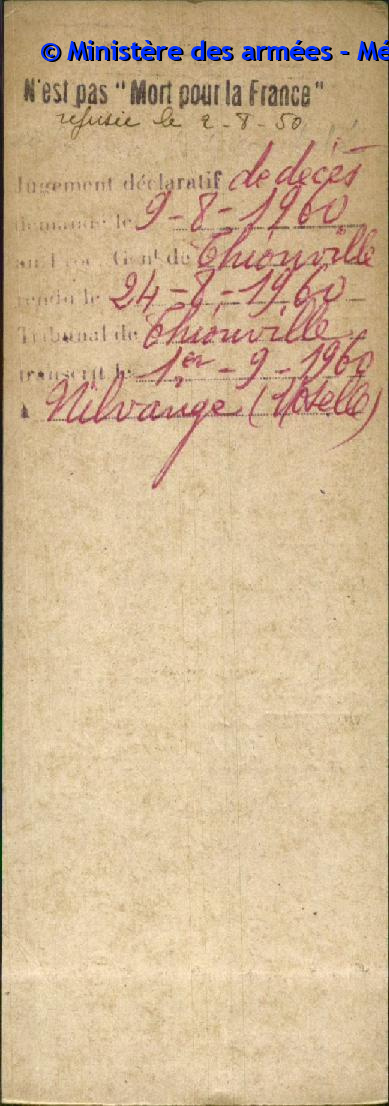 © Ministère des armées - Mé
N'est pas "Mort pour la France"
refusée le 2-8-50
Jugement déclaratif de décès
demandé le 9-8-1960
au Proc. Génl de Thionville
rendu le 24-8-1960
Tribunal de Thionville
transcrit le 1er-9-1960
à Nilvange (Moselle)